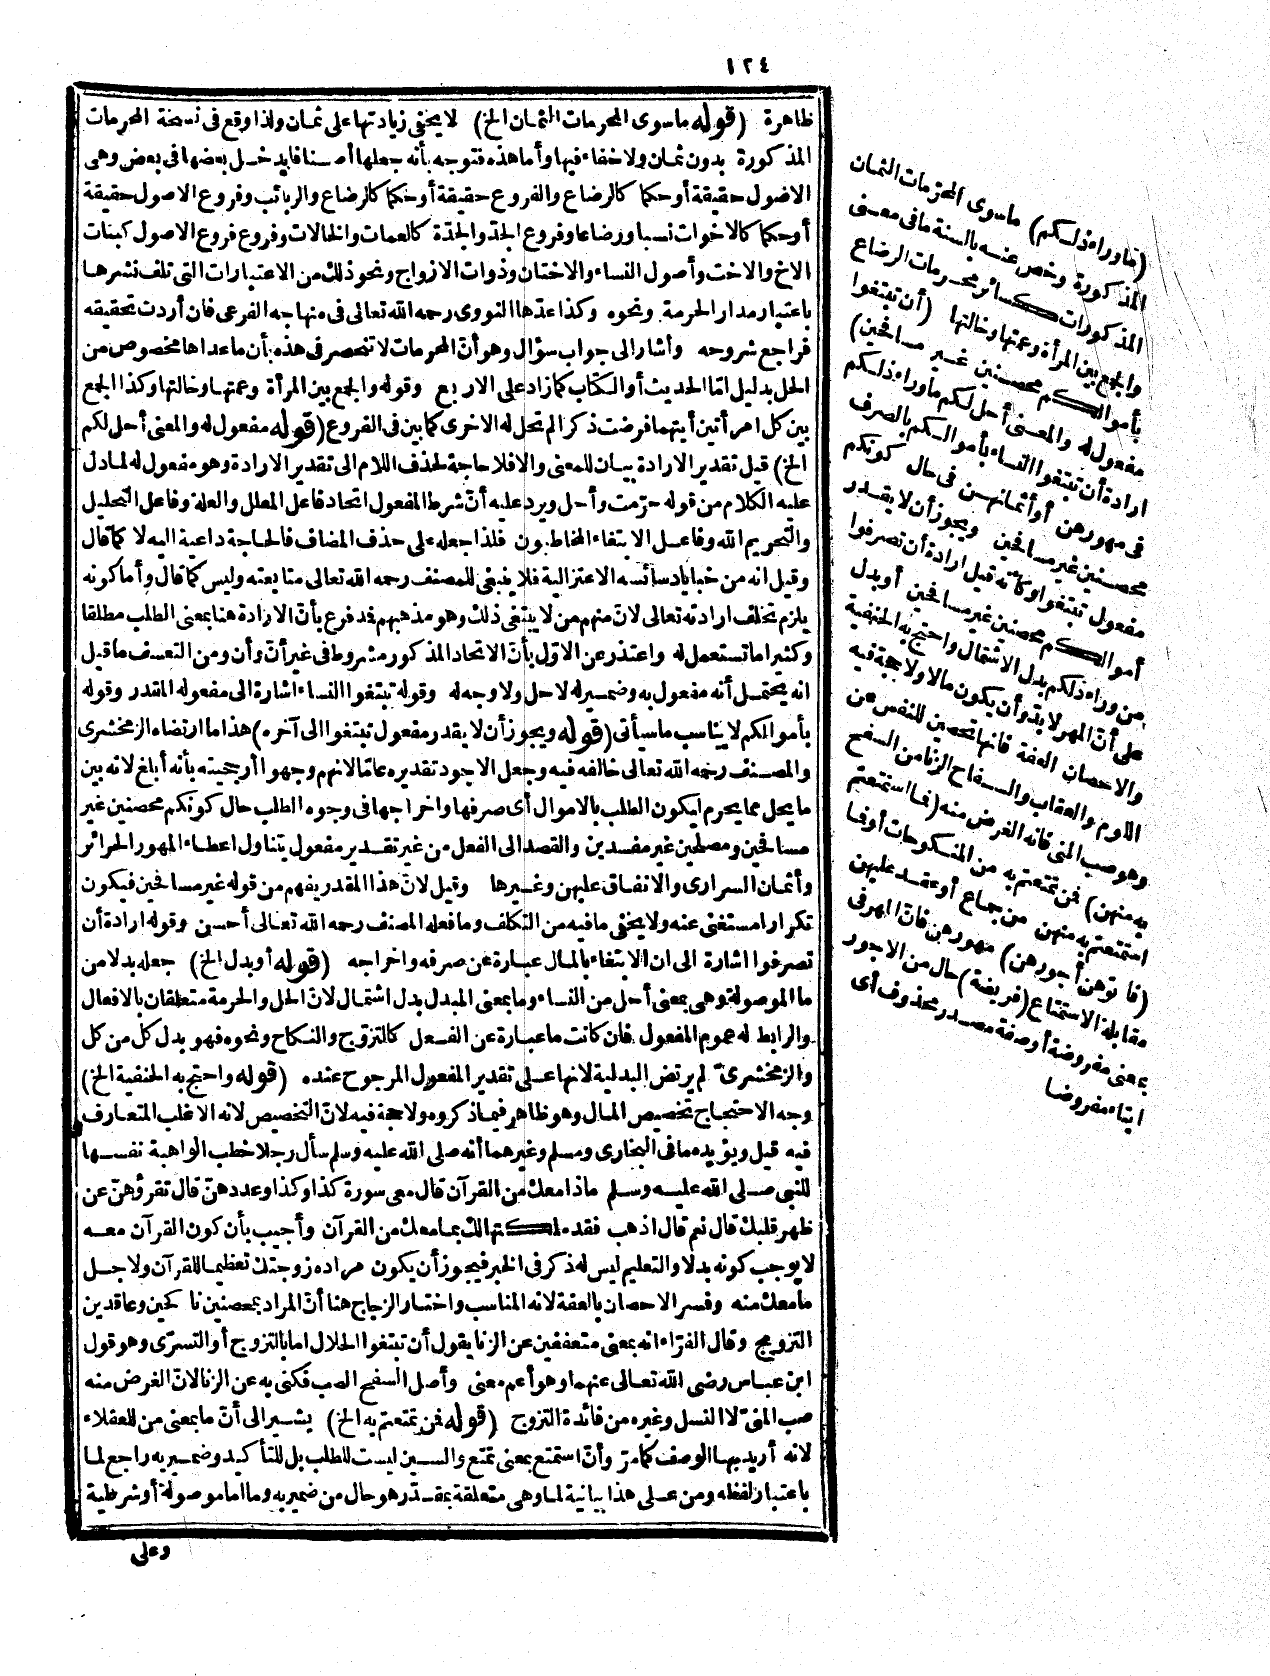 ١٢٤
ظاهرة (قوله ما سوى المحرمات الثمان الخ) لا يخفى زيادتها على ثمان ولذا وقع فى نسخة المحرمات
المذكورة بدون ثمان ولا خفاء فيها وأما هذه فتوجه بأنه جعلها أصنافا يدخل بعضها فى بعض وهى
الاصول حقيقة أو حكما كالرضاع والفروع حقيقة أو حكما كالرضاع والربائب وفروع الاصول حقيقة
أو حكما كالاخوات نسبا ورضاعا وفروع الجد والجدة كالعمات والخالات وفروع فروع الاصول كبنات
الاخ والاخت وأصول النساء والاختان وذوات الازواج ونحو ذلك من الاعتبارات التى تلف نشرها
باعتبار مدار الحرمة ونحوه وكذا عدّها النووى رحمه الله تعالى فى منهاجه الفرعى فان أردت تحقيقه
فراجع شروحه وأشار الى جواب سؤال وهو أنّ المحرمات لا تنحصر فى هذه بأن ماعداها مخصوص من
الحل بدليل امّا الحديث أو الكتاب كما زاد على الاربع وقوله والجمع بين المرأة وعمتها وخالتها وكذا الجمع
بين كل امرأتين أيتهما فرضت ذكرا لم تحل له الاخرى كما بين فى الفروع (قوله مفعول له والمعنى أحل لكم
الخ) قيل تقدير الارادة بيان للمعنى والا فلا حاجة لحذف اللام الى تقدير الارادة وهو مفعول له لما دل
عليه الكلام من قوله حرّمت وأحل ويرد عليه أنّ شرط المفعول اتحاد فاعل المعلل والعلة وفاعل التحليل
والتحريم الله وفاعل الابتغاء المخاطبون فلذا جعله على حذف المضاف فالحاجة داعية اليه لا كما قال
وقيل انه من خبايا دسائسه الاعتزالية فلا ينبغى للمصنف رحمه الله تعالى متابعته وليس كما قال وأما كونه
يلزم تخلف ارادته تعالى لانّ منهم من لا يبتغى ذلك وهو مذهبهم فدفع بأنّ الارادة هنا بمعنى الطلب مطلقا
وكثيرا ما تستعمل له واعتذر عن الاوّل بأنّ الاتحاد المذكور مشروط فى غير أنّ وأن ومن التعسف ما قيل
انه يحتمل أنه مفعول به وضميره لاحل ولا وجه له وقوله تبتغوا النساء اشارة الى مفعوله المقدر وقوله
بأموالكم لا يناسب ما سيأتى (قوله ويجوز أن لا يقدر مفعول تبتغوا الى آخره) هذا ما ارتضاه الزمخشرى
والمصنف رحمه الله تعالى خالفه فيه وجعل الاجود تقديره عامّا لانهم وجهوا أرجحيته بأنه أبلغ لانه بين
ما يحل مما يحرم ليكون الطلب بالاموال أى صرفها واخراجها فى وجوه الطلب حال كونكم محصنين غير
مسافحين ومصلحين غير مفسدين والقصد الى الفعل من غير تقدير مفعول يتناول اعطاء المهور الحرائر
وأثمان السرارى والانفاق عليهن وغيرها وقيل لانّ هذا المقدر يفهم من قوله غير مسافحين فيكون
تكرارا مستغنى عنه ولا يخفى ما فيه من التكلف وما فعله المصنف رحمه الله تعالى أحسن وقوله ارادة أن
تصرفوا اشارة الى ان الابتغاء بالمال عبارة عن صرفه واخراجه (قوله أو بدل الخ) جعله بدلا من
ما الموصولة وهى بمعنى أحل من النساء وما بمعنى المبدل بدل اشتمال لانّ الحل والحرمة متعلقان بالافعال
والرابط له عموم المفعول فان كانت ما عبارة عن الفعل كالتزوّج والنكاح ونحوه فهو بدل كل من كل
والزمخشرىّ لم يرتض البدلية لانها على تقدير المفعول المرجوح عنده (قوله واحتج به الحنفية الخ)
وجه الاحتجاج تخصيص المال وهو ظاهر فيما ذكروه ولا حجة فيه لانّ التخصيص لانه الاغلب المتعارف
فيه قيل ويؤيده ما فى البخارى ومسلم وغيرهما أنه صلى الله عليه وسلم سأل رجلا خطب الواهبة نفسها
للنبى صلى الله عليه وسلم ماذا معك من القرآن قال معى سورة كذا وكذا وعددهنّ قال تقرؤهنّ عن
ظهر قلبك قال نعم قال اذهب فقد ملكتها لك بما معك من القرآن وأجيب بأن كون القرآن معه
لا يوجب كونه بدلا والتعليم ليس له ذكر فى الخبر فيجوز أن يكون مراده زوجتك تعظيما للقرآن ولاجل
ما معك منه وفسر الاحصان بالعفة لانه المناسب واختار الزجاج هنا أنّ المراد بمحصنين ناكحين وعاقدين
التزويج وقال الفرّاء انه بمعنى متعففين عن الزنا يقول أن تبتغوا الحلال اما بالتزوج أو التسرّى وهو قول
ابن عباس رضى الله تعالى عنهما وهو أعم معنى وأصل السفح الصب فكنى به عن الزنا لانّ الغرض منه
صب المنىّ لا النسل وغيره من فائدة التزوج (قوله فمن تمتعتم به الخ) يشير الى أنّ ما بمعنى من للعقلاء
لانه أريد بها الوصف كما مرّ وأنّ استمتع بمعنى تمتع والسين ليست للطلب بل للتأكيد وضمير به راجع لما
باعتبار لفظه ومن على هذا بيانية لما وهى متعلقة بمقدّر هو حال من ضمير به وما اما موصولة أو شرطية
وعلى
(ما وراء ذلكم) ما سوى المحرّمات الثمان
المذكورة وخص عنه بالسنة ما فى معنى
المذكورات كسائر محرمات الرضاع
والجمع بين المرأة وعمتها وخالتها (أن تبتغوا
بأموالكم محصنين غير مسافحين)
مفعول له والمعنى أحل لكم ما وراء ذلكم
ارادة أن تبتغوا النساء بأموالكم بالصرف
فى مهورهن أو أثمانهن فى حال كونكم
محصنين غير مسافحين ويجوز أن لا يقدر
مفعول تبتغوا وكأنه قيل ارادة أن تصرفوا
أموالكم محصنين غير مسافحين أو بدل
من وراء ذلكم بدل الاشتمال واحتج به الحنفية
على أنّ المهر لا بد وأن يكون مالا ولا حجة فيه
والاحصان العفة فانها تحصين للنفس عن
اللوم والعقاب والسفاح الزنا من السفح
وهو صب المنى فانه الغرض منه (فما استمتعتم
به منهن) فمن تمتعتم به من المنكوحات أو فما
استمتعتم به منهن من جماع أو عقد عليهن
(فآتوهن أجورهن) مهورهن فانّ المهر فى
مقابلة الاستمتاع (فريضة) حال من الاجور
بمعنى مفروضة أو صفة مصدر محذوف أى
ايتاء مفروضا